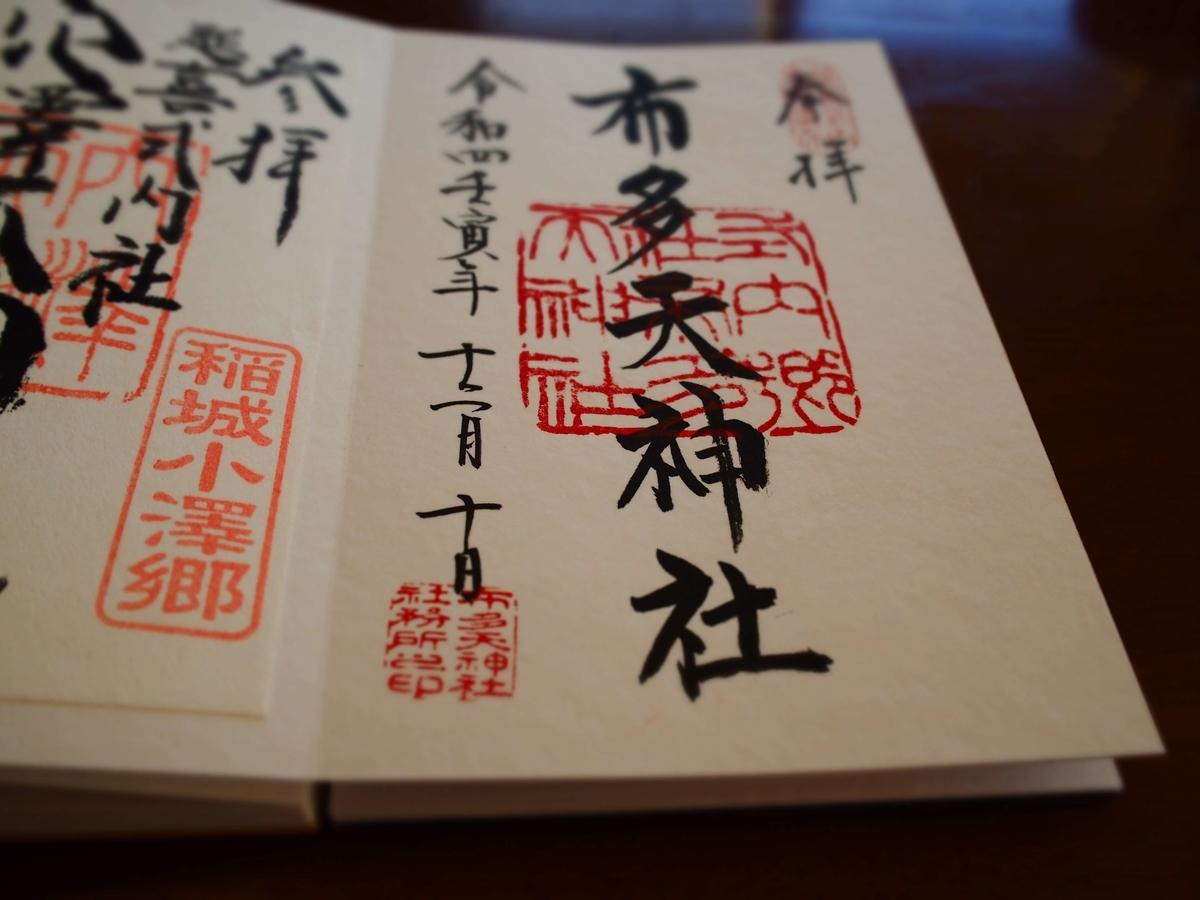 奉拝
布多天神社
式内郷
社布多
天神社
令和四壬寅年 十二月 十日
布多天神社
社務所之印
参拝
延喜式内社
稲城小澤郷